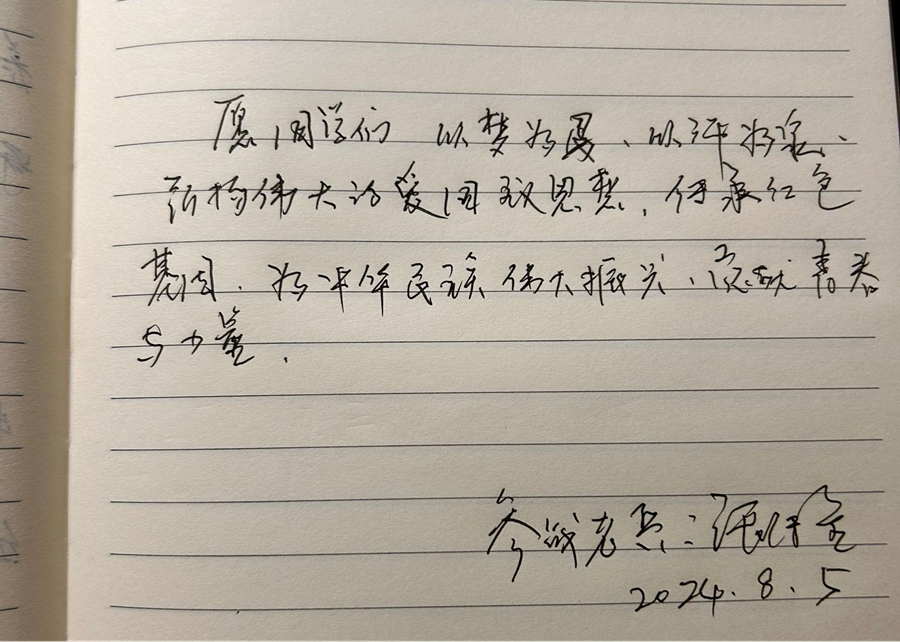 愿同学们 以梦为马、以汗为泉、
弘扬伟大的爱国主义思想,传承红色
基因,为中华民族伟大振兴、贡献青春
与力量.
参战老兵:
2024.8.5